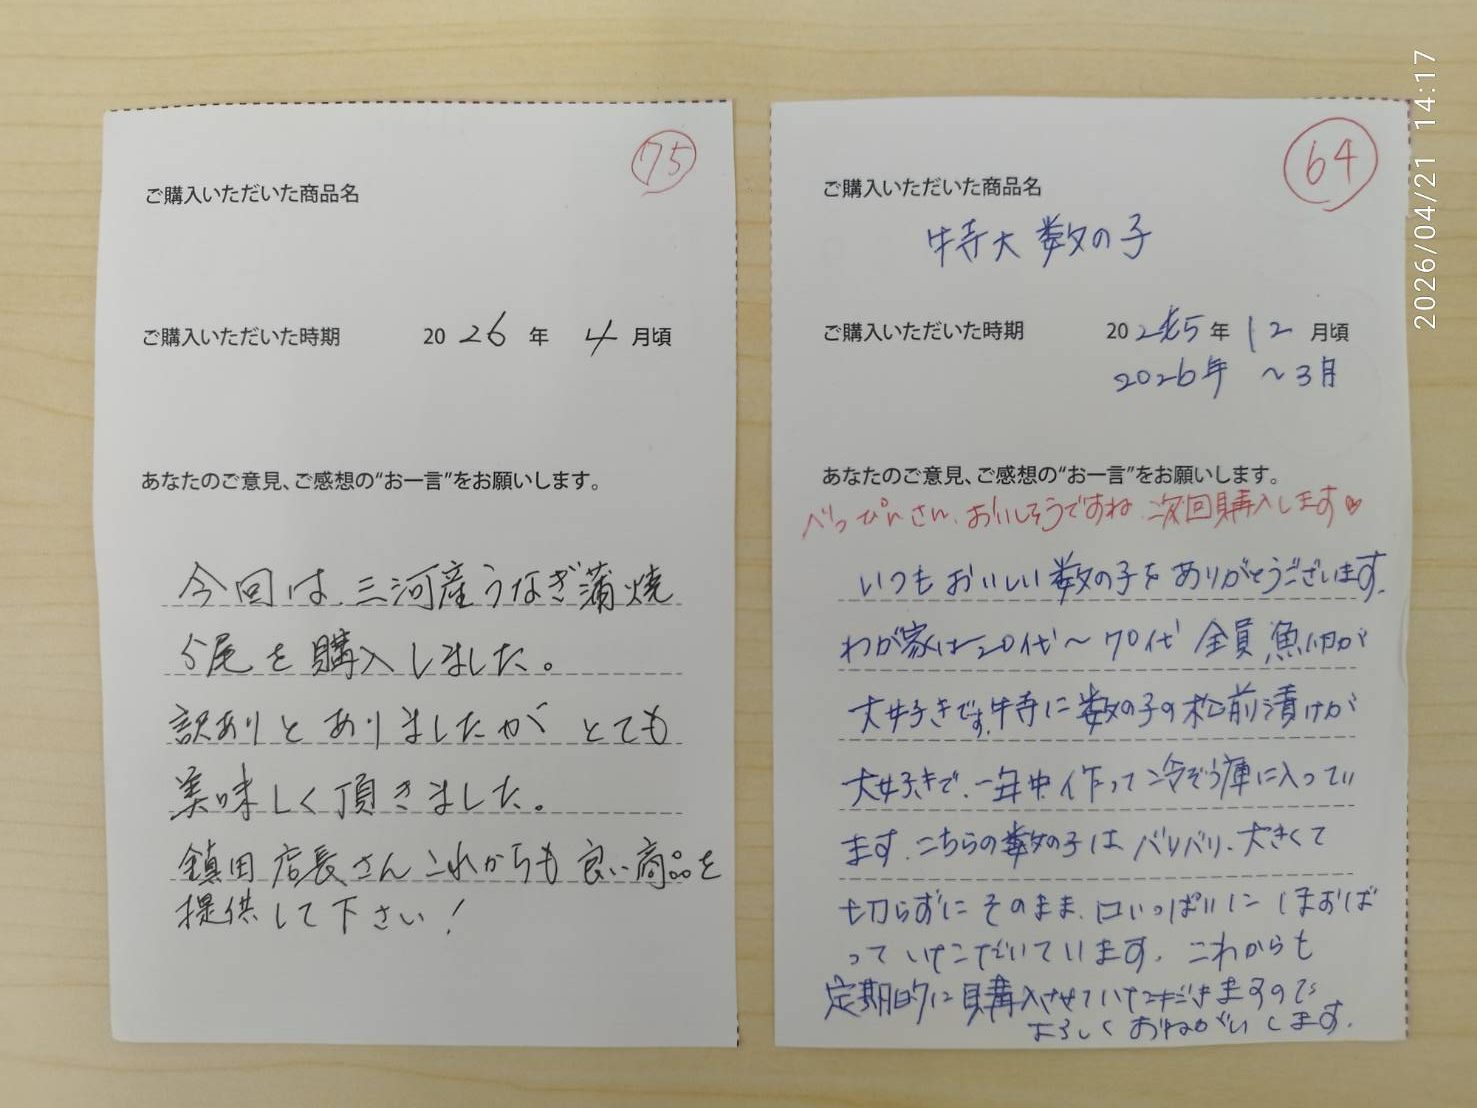 75
ご購入いただいた商品名
ご購入いただいた時期 2026年 4月頃
あなたのご意見、ご感想の“お一言”をお願いします。
今回は、三河産うなぎ蒲焼
5尾を購入しました。
訳ありとありましたが とても
美味しく頂きました。
鎮田店長さんこれからも良い商品を
提供して下さい！
64
ご購入いただいた商品名
特大数の子
ご購入いただいた時期 2025年 12月頃
2026年 〜3月
あなたのご意見、ご感想の“お一言”をお願いします。
べっぴんさん、おいしそうですね 次回購入します♡
いつもおいしい数の子をありがとうございます。
わが家は20代〜70代 全員、魚卵が
大好きです。特に数の子の松前漬けが
大好きで、一年中作って冷ぞう庫に入ってい
ます。こちらの数の子はバリバリ、大きくて
切らずにそのまま、口いっぱいにほおば
っていただいています。これからも
定期的に購入させていただきますので
よろしくおねがいします。
2026/04/21 14:17